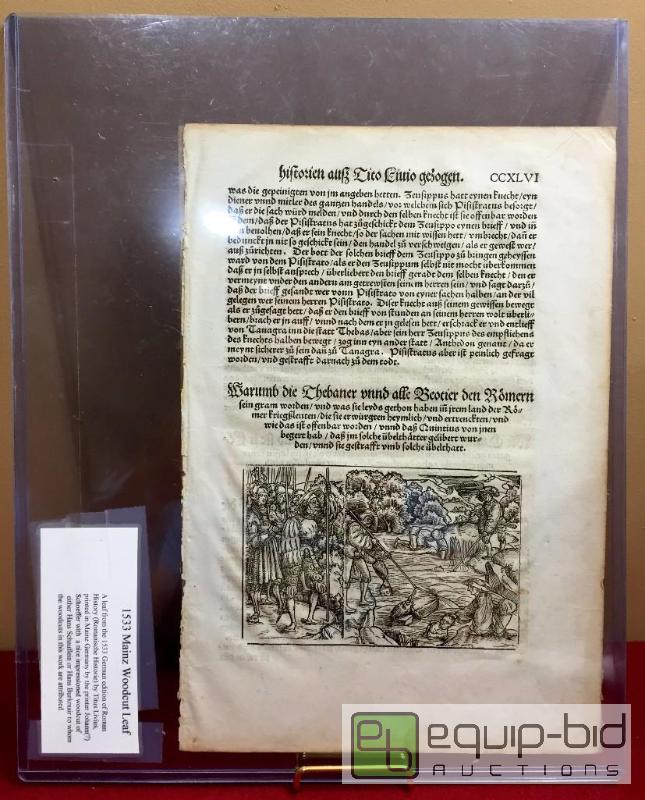 historien auß Tito Liuio gezogen. CCXLVI
was die gepeinigten von jm angeben hetten. Zeusippus hatt eynen knecht/eyn
diener vnnd mitler des gantzen handels/vor welchem sich Pisistratus besorgt/
daß er die sach würd melden/vnd durch den selben knecht ist sie offenbar worden
in dem/daß der Pisistratus hat zůgeschickt dem Zeusippo eynen brieff/vnd in
den benolhen/daß er sein knecht/so der sachen mit wissen hett/vmbrecht/dañ er
bedunckt jn nit so geschickt sein/den handel zů verschweigen/als er gewest wer/
auß zůrichten. Der bott der solchen brieff dem Zeusippo zů bringen geheyssen
ward von dem Pisistrato/als er den Zeusippum selbst nit mocht überkommen
daß er jn selbst ansprech/überliebert den brieff geradt den selben knecht/den er
vermeynt vnder den andern am getrewsten seinem herren sein/vnd sagt darzů/
daß der brieff gesandt wer vonn Pisistrato von eyner sachen halben/an der vil
gelegen wer seinem herren Pisistrato. Diser knecht auß seinem gewissen bewegt
als er zůgesagt hett/daß er den brieff von stunden an seinem herren wolt überli-
bern/brach er jn auff/vnnd nach dem er jn gelesen hett/erschrack er vnd entlieff
von Tanagra inn die statt Thebas/aber sein herr Zeusippus des empfliehens
des knechts halben bewegt/zog inn eyn ander statt/Anthedon genant/da er
meynt sicherer zů sein dañ zů Tanagra. Pisistratus aber ist peinlich gefragt
worden/vnd gestrafft darnach zů dem todt.
Warumb die Thebaner vnnd alle Beotier den Römern
sein gram worden/vnd was sie leyds gethon haben in jrem land der Rö-
mer kriegßleuten/die sie erwürgten heymlich/vnd ertrenckten/vnd
wie das ist offenbar worden/vnnd daß Quintius von jnen
begert hab/daß jm solche übelthätter gelibert wur-
den/vnnd sie gestrafft vmb solche übelthatt.
1533 Mainz Woodcut Leaf
A leaf from the 1533 German edition of Roman
History (Romanische Historie) by Titus Livius,
printed in Mainz Germany by the printer Johann(?)
Schoeffer with a nice impressioned woodcut of
either Hans Schaufflein or Hans Burkmair to whom
the woodcuts in this work are attributed
eb equip-bid
AUCTIONS